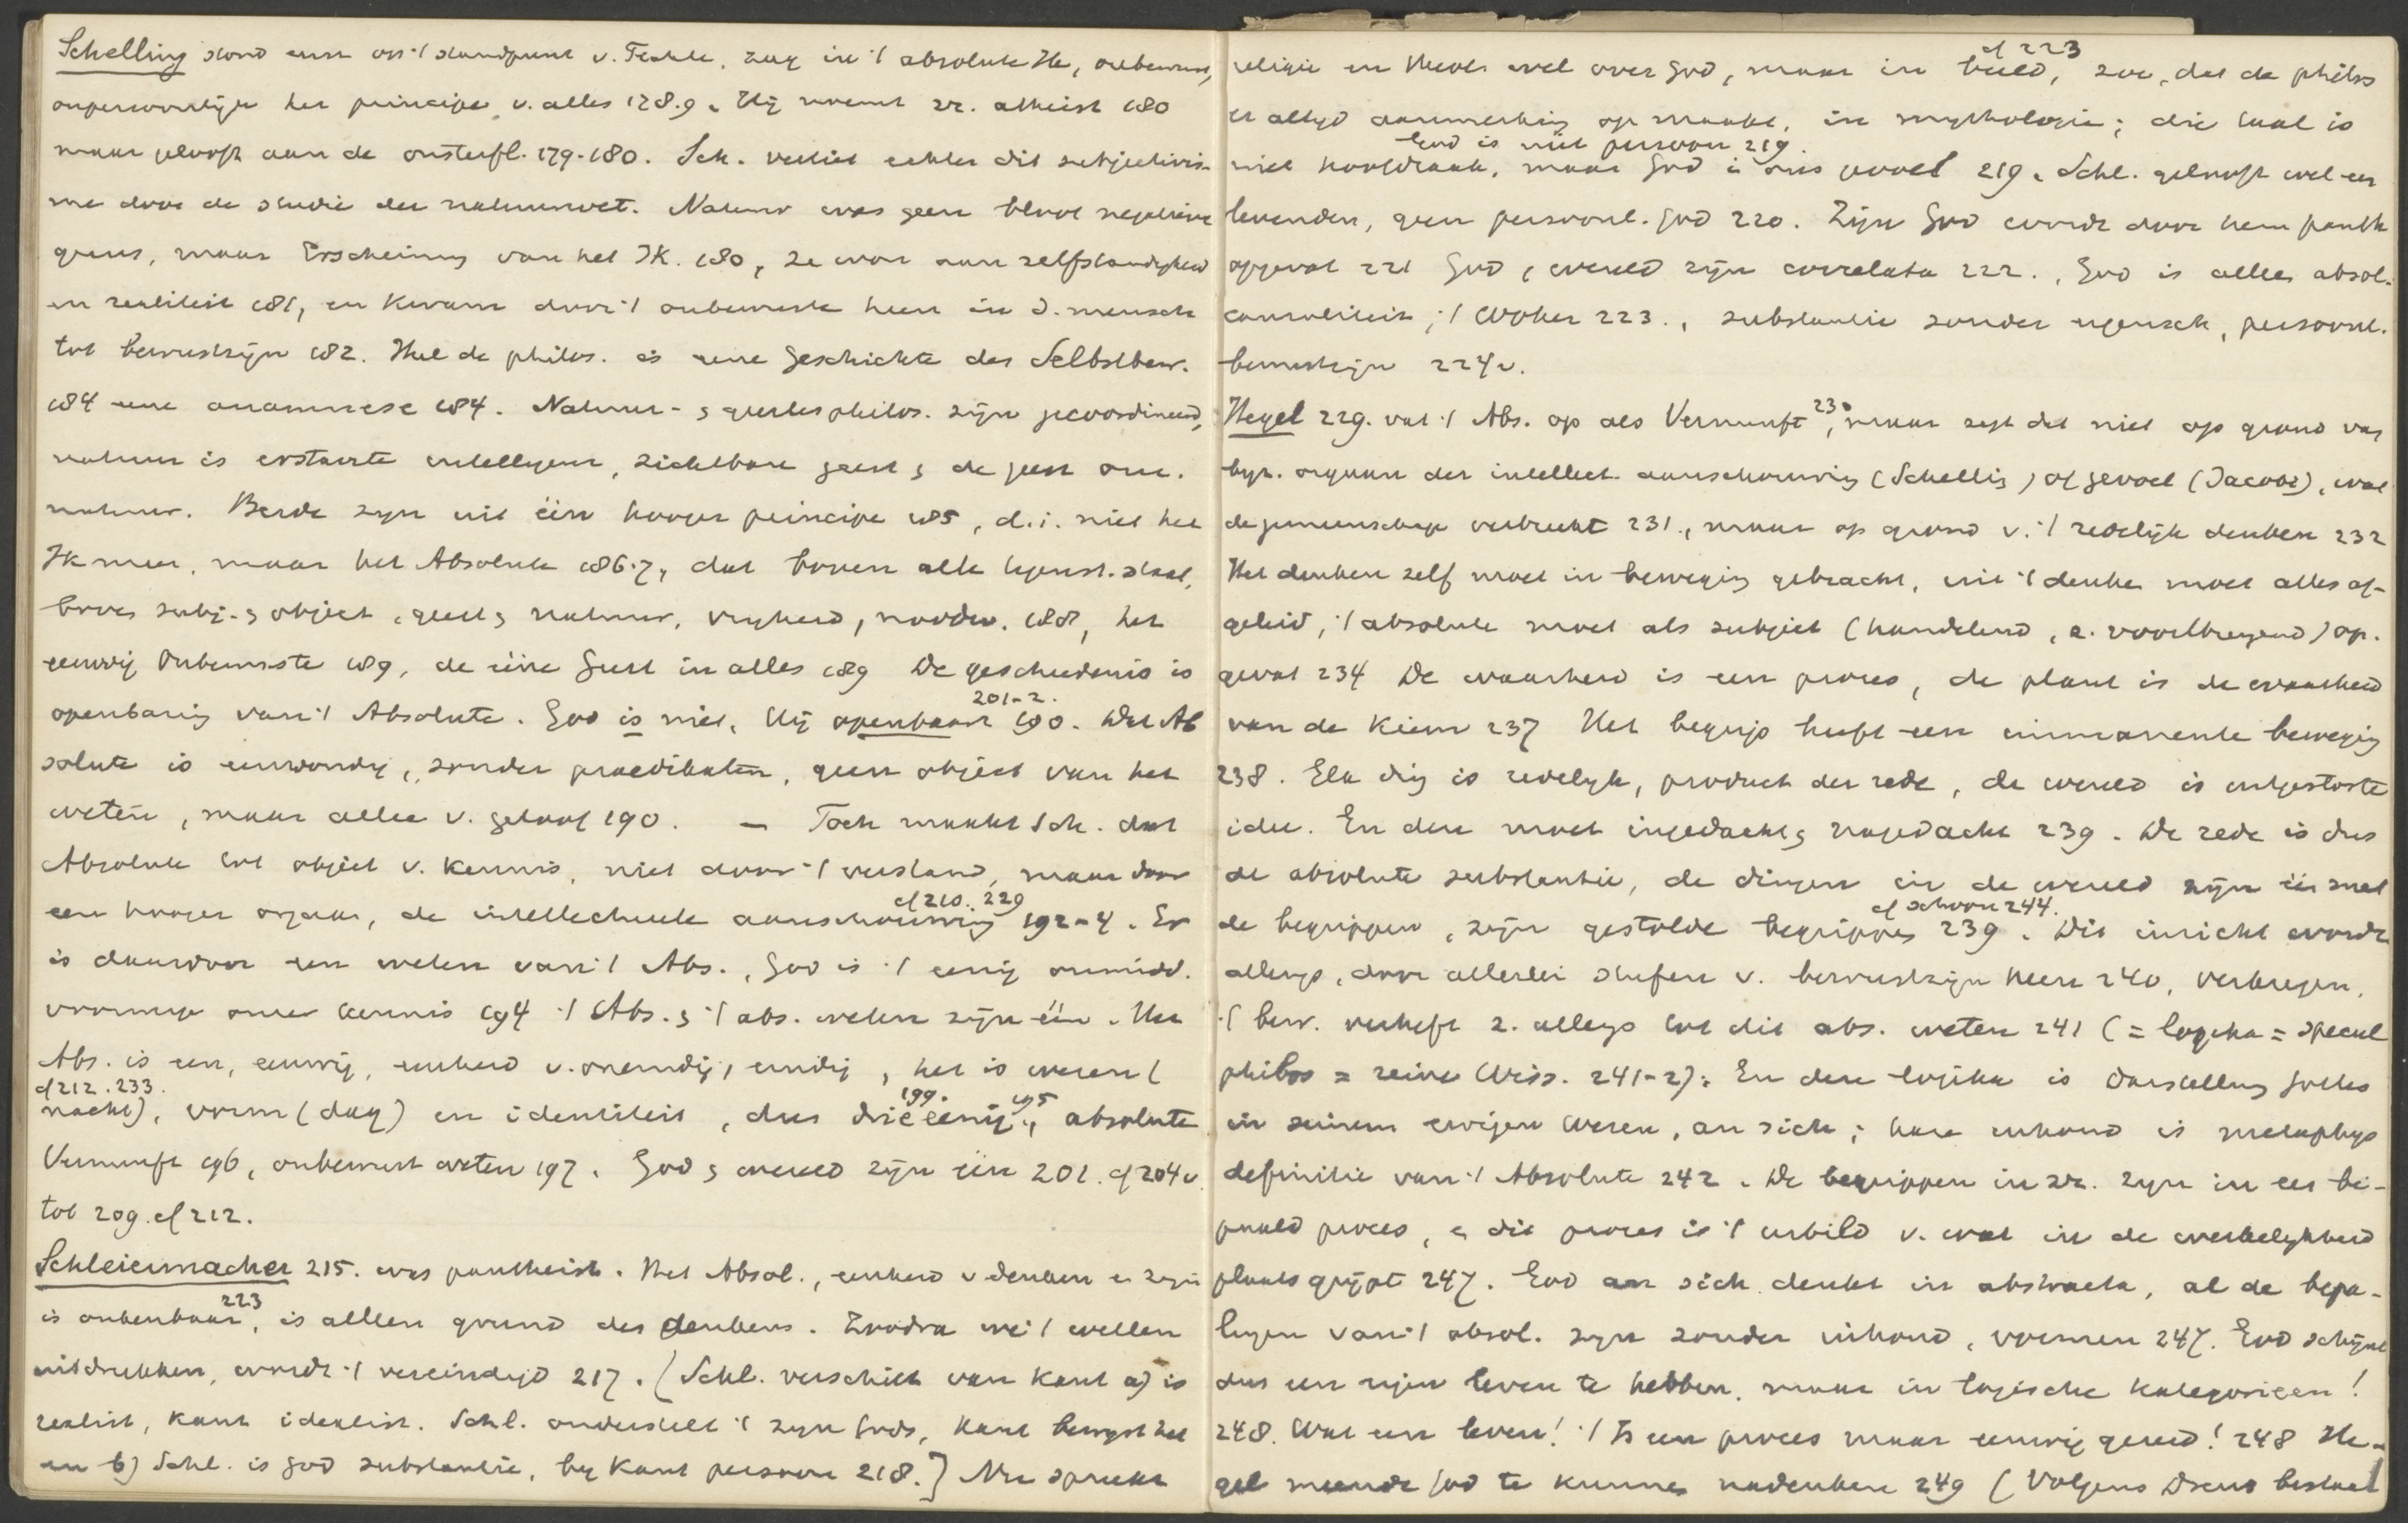 Schelling stond eerst op 't standpunt v. Fichte, zag in 't absolute Ik, onbewust,
onpersoonlijk het principe v. alles 178.9. Hij noemt zr. atheist 180
maar gelooft aan de onsterfl. 179-180. Sch. verliet echter dit subjectivis-
me door de studie der natuurwet. Natuur was geen bloot negatieve
grens, maar Erscheinung van het Ik. 180, ze won aan zelfstandigheid
en realiteit 181, en kwam door 't onbewuste heen in d. mensch
tot bewustzijn 182. Heel de philos. is eene Geschichte des Selbstbew.
184 eene anamnese 184. Natuur- & geestesphilos. zijn gecoordineerd,
natuur is erstarrte intelligenz, zichtbare geest & de geest onz.
natuur. Beide zijn uit één hooger principe 185, d.i. niet het
Ik meer, maar het Absolute 186.7, dat boven alle tegenst. staat,
boven subj. & object, geest & natuur, vrijheid, noodw. 188, het
eeuwig Onbewuste 189, de ééne Geest in alles 189 De geschiedenis is
201-2.
openbaring van 't Absolute. God is niet, Hij openbaart 190. Het Ab
solute is eenvoudig, zonder praedikaten, geen object van het
weten, maar alleen v. geloof 190. — Toch maakt Sch. dat
Absolute tot object v. kennis, niet door 't verstand, maar door
cf 210. 229
een hooger orgaan, de intellectueele aanschouwing 192-4. Er
is daardoor een weten van 't Abs., God is 't eenig onmidd.
voorwerp onzer kennis 194 't Abs. & 't abs. weten zijn één. Het
Abs. is een, eeuwig, eenheid v. oneindig, eindig, het is wezen (
cf 212. 233. 199. 195
nacht), vorm (dag) en identiteit, dus drieëenig, absolute
Vernunft 196, onbewust weten 197. God & wereld zijn één 201. cf 204 v.
tot 209. cf 212.
Schleiermacher 215. was pantheist. Het Absol., eenheid v denken en zijn
223
is onkenbaar, is alleen grond des denkens. Zoodra we 't willen
uitdrukken, wordt 't vereindigd 217. (Schl. verschilt van Kant a) is
realist, Kant idealist. Schl. onderstelt 't zijn Gods, Kant bewijst het
en b) Schl. is God substantie, by Kant persoon 218.] Nu spreekt
cf 223
religie en theol. wel over God, maar in beeld, zoo, dat de philos
er altyd aanmerking op maakt, in mythologie; die taal is
God is niet persoon 219.
niet noodzaak, maar God is ons gevoel 219. Schl. gelooft wel een
levenden, geen persoonl. God 220. Zijn God wordt door hem panth
opgevat 221 God, wereld zijn correlata 222., God is alles absol.
causaliteit, 't Woher 223., substantie zonder eigensch, persoonl.
bewustzijn 224 v.
Hegel 229. vat 't Abs. op als Vernunft 230, maar zegt dat niet op grond van
byz. orgaan der intellect. aanschouwing (Schelling) of gevoel (Jacobi), wat
de gemeenschap verbreekt 231., maar op grond v. 't redelijk denken 232
Het denken zelf moet in beweging gebracht, uit 't denken moet alles af-
geleid, 't absolute moet als subject (handelend, z. voortbrengend) op-
gevat 234 De waarheid is een proces, de plant is de waarheid
van de kiem 237 Het begrip heeft een immanente beweging
238. Elk ding is redelyk, product der rede, de wereld is
idee. En deze moet ingedacht & nagedacht 239. De rede is dus
de absolute substantie, de dingen in de wereld zijn één met
cf schoon 244.
de begrippen, zijn gestolde begrippen 239. Dit inzicht wordt
allengs, door allerlei stufen v. bewustzijn heen 240, verkregen,
't bew. verheft z. allengs tot dit abs. weten 241 (= logika = specul
philos = reine Wiss. 241-2). En deze logika is Darstellung Gottes
in seinem ewigen Wesen, an sich; hare inhoud is metaphys
definitie van 't Absolute 242. De begrippen in zr. zyn in een be-
paald proces, en dit proces is 't urbild v. wat in de werkelykheid
plaats grijpt 247. God an sich denkt in abstracta, al de bepa-
lingen van 't absol. zyn zonder inhoud, vormen 247. God schijnt
dus een eigen leven te hebben, maar in logische kategorieen!
248. Wat een leven! 't Is een proces maar eeuwig gereed! 248 He-
gel meende God te kunnen nadenken 249 (Volgens Drews bestaat